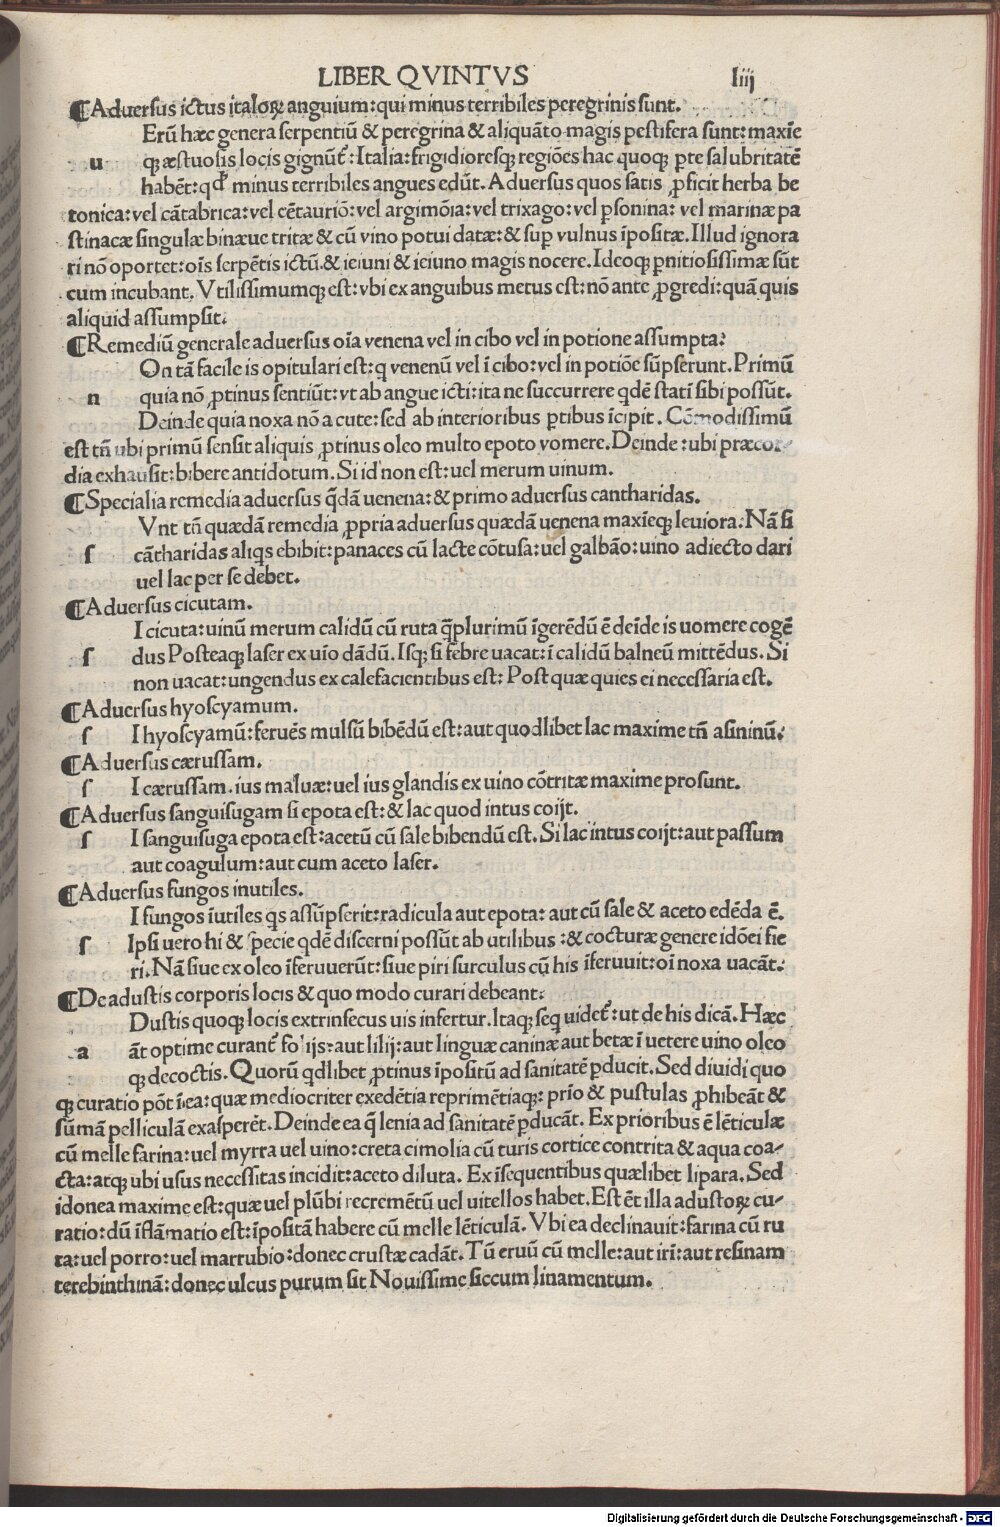 LIBER QVINTVS liij
¶Aduersus ictus italoꝝ anguium: qui minus terribiles peregrinis sunt.
Erũ hæc genera serpentiũ & peregrina & aliquãto magis pestifera sunt: maxĩe
u qꝫ æstuosis locis gignũt᷑: Italia: frigidioresqꝫ regiões hac quoqꝫ ꝑte salubritatẽ
habẽt: qđ minus terribiles angues edũt. Aduersus quos satis ꝓficit herba be
tonica: vel cãtabrica: vel cẽtauriõ: vel argimõia: vel trixago: vel ꝑsonina: vel marinæ pa
stinacæ singulæ binæue tritæ & cũ vino potui datæ: & suꝑ vulnus ĩpositæ. Illud ignora
ri nõ oportet: oĩs serpẽtis ictũ & ieiuni & ieiuno magis nocere. Ideoqꝫ ꝑnitiosissimæ sũt
cum incubant. Vtilissimumqꝫ est: vbi ex anguibus metus est: nõ ante ꝓgredi: quã quis
aliquid assumpsit.
¶Remediũ generale aduersus oĩa venena vel in cibo vel in potione assumpta:
On tã facile is opitulari est: q venenũ vel ĩ cibo: vel in potiõe sũpserunt. Primũ
n quia nõ ꝓtinus sentiũt: vt ab angue icti: ita ne succurrere qdẽ statĩ sibi possũt.
Deinde quia noxa nõ a cute: sed ab interioribus ꝑtibus ĩcipit. Cõmodissimũ
est tñ ubi primũ sensit aliquis ꝓtinus oleo multo epoto vomere. Deinde: ubi præcor-
dia exhausit: bibere antidotum. Si id non est: uel merum uinum.
¶Specialia remedia aduersus q̃dã uenena: & primo aduersus cantharidas.
Vnt tñ quædã remedia ꝓpria aduersus quædã uenena maxĩeqꝫ leuiora. Nã si
ſ cãtharidas aliqs ebibit: panaces cũ lacte cõtusa: uel galbão: uino adiecto dari
uel lac per se debet.
¶Aduersus cicutam.
I cicuta: uinũ merum calidũ cũ ruta q̃plurimũ ĩgerẽdũ ẽ deĩde is uomere cogẽ
ſ dus Posteaqꝫ laser ex uĩo dãdũ. Isqꝫ si febre uacat: ĩ calidũ balneũ mittẽdus. Si
non uacat: ungendus ex calefacientibus est: Post quæ quies ei necessaria est.
¶Aduersus hyoscyamum.
ſ I hyoscyamũ: feruẽs mulsũ bibẽdũ est: aut quodlibet lac maxime tñ asininũ.
¶Aduersus cærussam.
ſ I cærussam. ius maluæ: uel ius glandis ex uino cõtritæ maxime prosunt.
¶Aduersus sanguisugam si epota est: & lac quod intus coijt.
ſ I sanguisuga epota est: acetũ cũ sale bibendũ est. Si lac intus coijt: aut passum
aut coagulum: aut cum aceto laser.
¶Aduersus fungos inutiles.
I fungos ĩutiles qs assũpserit: radicula aut epota: aut cũ sale & aceto edẽda ẽ.
ſ Ipsi uero hi & specie qdẽ discerni possũt ab utilibus: & cocturæ genere idõei fie
ri. Nã siue ex oleo ĩferuuerũt: siue piri surculus cũ his ĩferuuit: oĩ noxa uacãt.
¶De adustis corporis locis & quo modo curari debeant:
Dustis quoqꝫ locis extrinsecus uis infertur. Itaqꝫ seq uidet᷑: ut de his dicã. Hæc
a ãt optime curant᷑ fo ijs: aut lilij: aut linguæ caninæ aut betæ ĩ uetere uino oleo
qꝫ decoctis. Quorũ qdlibet ꝓtinus ĩpositũ ad sanitatẽ ꝑducit. Sed diuidi quo
qꝫ curatio põt ĩ ea: quæ mediocriter exedẽtia reprimẽtiaqꝫ: prĩo & pustulas ꝓhibeãt &
sũmã pelliculã exasperẽt. Deinde ea q̃ lenia ad sanitatẽ ꝑducãt. Ex prioribus ẽ lẽticulæ
cũ melle farina: uel myrra uel uino: creta cimolia cũ turis cortice contrita & aqua coa-
cta: atqꝫ ubi usus necessitas incidit: aceto diluta. Ex ĩsequentibus quælibet lipara. Sed
idonea maxime est: quæ uel plũbi recremẽtũ uel uitellos habet. Est ẽt illa adustoꝝ cu-
ratio: dũ ĩflãmatio est: ĩpositã habere cũ melle lẽticulã. Vbi ea declinauit: farina cũ ru
ta: uel porro: uel marrubio: donec crustæ cadãt. Tũ eruũ cũ melle: aut irĩ: aut resinam
terebinthinã: donec ulcus purum sit Nouissime siccum linamentum.
Digitalisierung gefördert durch die Deutsche Forschungsgemeinschaft - DFG